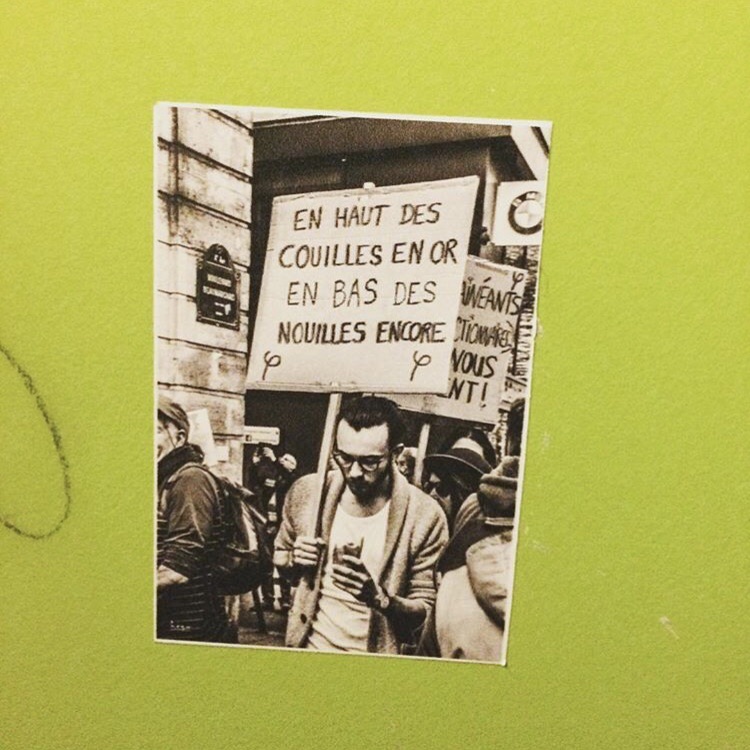 EN HAUT DES
COUILLES EN OR
EN BAS DES
NOUILLES ENCORE
φ φ
AINÉANTS
CTIONNAIRES
VOUS
ENT!